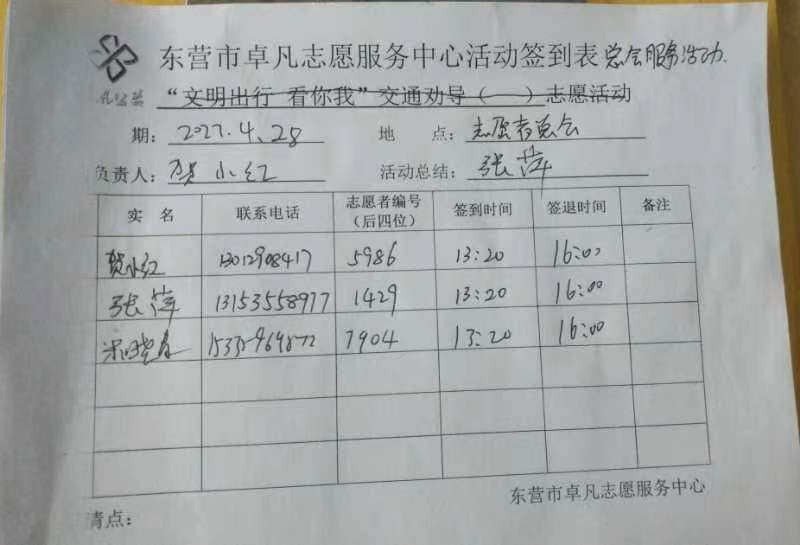 东营市卓凡志愿服务中心活动签到表 总会服务活动
凡公益 “文明出行 看你我”交通劝导（ 一 ）志愿活动
期：2022.4.28 地 点：志愿者总会
负责人：贺小红 活动总结：张萍
实 名 联系电话 志愿者编号（后四位） 签到时间 签退时间 备注
贺小红 13012908417 5986 13:20 16:00
张萍 13153558977 1429 13:20 16:00
7904 13:20 16:00
东营市卓凡志愿服务中心
清点：